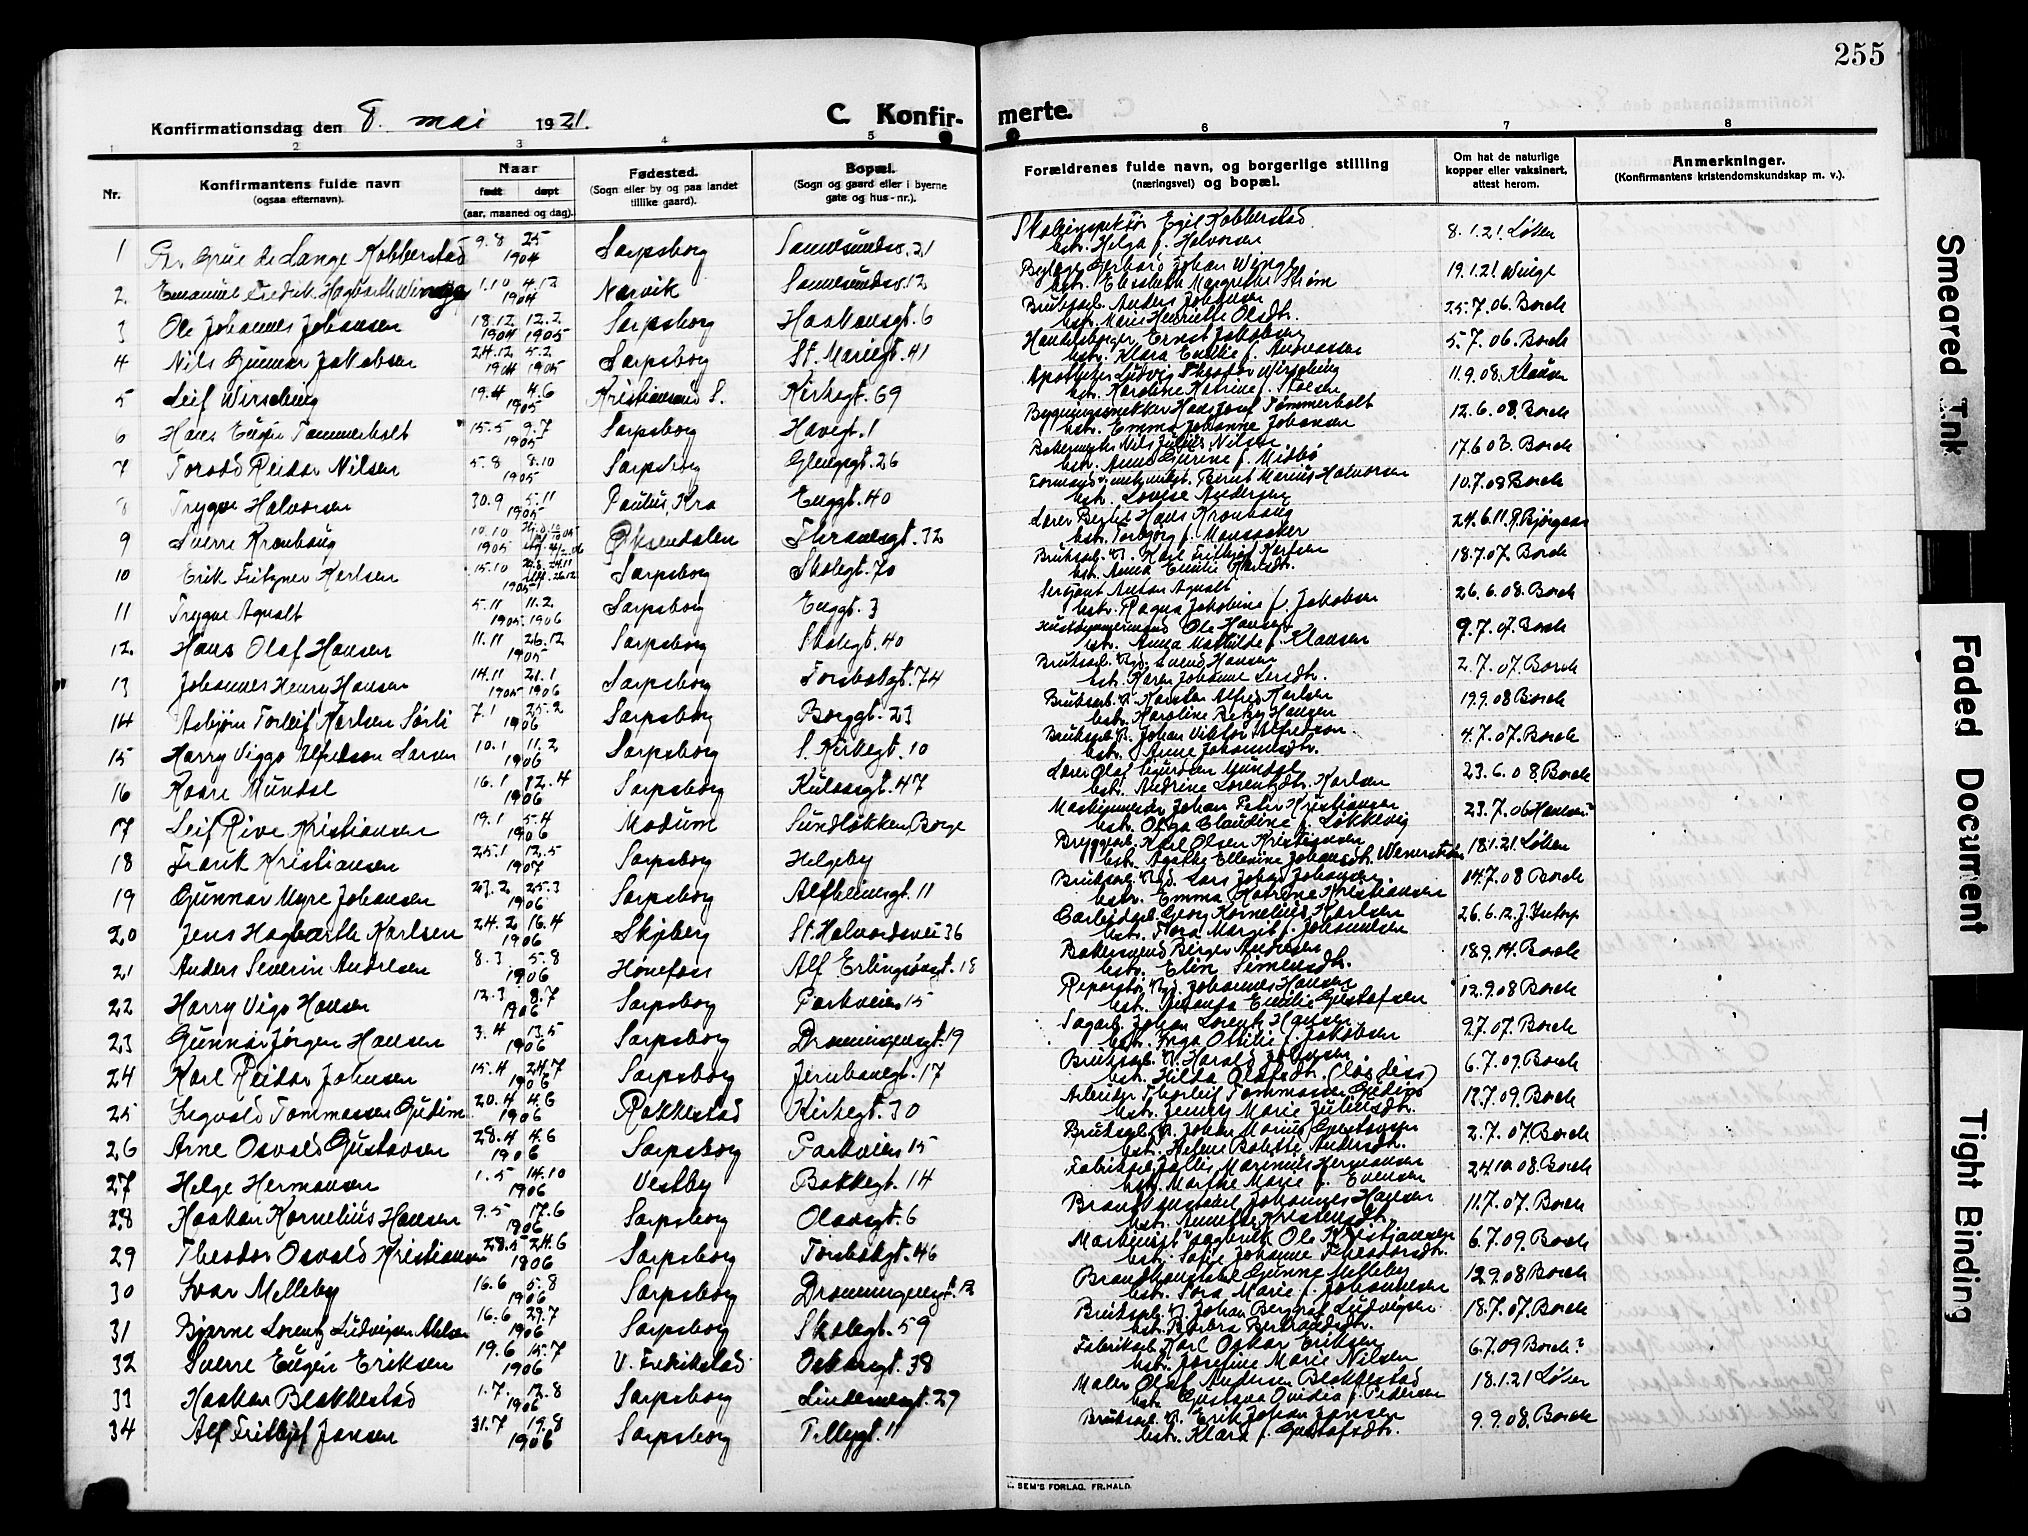 255
Konfirmationsdag den 8. mai 1921.
C. Konfirmerte.
1 2 3 4 5 6 7 8
Nr. Konfirmantens fulde navn (ogsaa efternavn). Naar født døpt (aar, maaned og dag). Fødested. (Sogn eller by og paa landet tillike gaard). Bopæl. (Sogn og gaard eller i byerne gate og hus-nr.). Forældrenes fulde navn, og borgerlige stilling (næringsvei) og bopæl. Om hat de naturlige kopper eller vaksinert, attest herom. Anmerkninger. (Konfirmantens kristendomskundskap m. v.).
1 Grue de Lange Kobberstad 9.8 25 1904 Sarpsborg Skoleinspektør Egil Kobberstad hstr. Helga f. Halvorsen 8.1.21. Løken
2. Emanuel Fredrik Hagbarth Winge 1.10 4.12 1904 Narvik Gerhard Johan Winge hstr. Elisabeth Margrethe Strøm 19.1.21. Winge
3 Ole Johannes Johansen 18.12 1904 12.2 1905 Sarpsborg Haakonsgt. 6 Bruksarb. Anders Johansen hstr. Marie Henriette Olsdtr. 25.7.06. Borch
4 Nils Gunnar Jakobsen 24.12 1904 5.2 1905 Sarpsborg St. Mariegt. 41 Handelsborger Ernst Jakobsen hstr. Klara Emilie f. Andreassen 5.7.06. Borch
5 Leif Wirsching 19.4 4.6 1905 Kristiansand S. Kirkegt. 69 Apotheker Ludvig Theodor Wirsching hstr. Karoline Katrine f. Stolsen 11.9.08. Klausen
6 Hans Eugen Tømmerholt 15.5 9.7 1905 Sarpsborg Havegt. 1 Bygningssnekker Hans Josef Tømmerholt hstr. Emma Johanne Johansen 12.6.08. Borch
7 Torolf Reidar Nilsen 5.8 8.10 1905 Sarpsborg Glengsgt. 26 Bakermester Nils Julius Nilsen hstr. Anna Gurine f. Midbø 17.6.08. Borch
8 Trygve Halvorsen 30.9 5.11 1905 Paulus, Kra Enggt. 40 Bernt Marius Halvorsen hstr. Lovise Andersen 10.7.08 Borch
9 Sverre Kronhaug 10.10 1905 Øksendalen Thranesgt. 32 Lærer Hans Kronhaug hstr. Torbjørg f. 24.6.11.
10 Erik Fritzner Karlsen 15.10 1905 Sarpsborg Skolegt. 70 Bruksarb. Karl Fritjof Karlsen hstr. Anna Emilie Karlsdtr. 18.7.07. Borch
11 Trygve Aqualt 5.11 1905 11.2 1906 Sarpsborg Enggt. 3 Sersjant Anton Aqualt hstr. Ragna Jakobine f. Jakobsen 26.6.08. Borch
12. Hans Olaf Hansen 11.11 26.12 1905 Sarpsborg Skolegt. 40 Hustømmermand Ole Hansen hstr. Anna Mathilde f. Klausen 9.7.07. Borch
13 Johannes Henry Hansen 14.11 1905 21.1 1906 Sarpsborg Torsbekgt. 74 Bruksarb. Svend Hansen hstr. Karen Johanne Larsdtr. 2.7.07. Borch
14 Asbjørn Torleif Karlsen Sørli 7.1 25.2 1906 Sarpsborg Borggt. 23 Bruksarb. Karsten Alfred Karlsen hstr. Karoline Betzy Hansen 19.9.08 Borch
15 Harry Viggo Alfredson Larsen 10.1 11.2 1906 Sarpsborg S. Kirkegt. 10 Bruksarb. Johan Viktor Alfredson. hstr. Anne Johannesdtr. 4.7.07. Borch
16 Kaare Mundal 16.1 12.4 1906 Sarpsborg Kulaasgt. 47 Lærer Olaf Sigurdsen Mundal hstr. Andrine Lorentzdtr. Karlsen 23.6.08. Borch
17 Leif Rive Kristiansen 19.1 5.4 1906 Modum Sundløkken, Borge Maskinmester Johan Peter Kristiansen hstr. Olga Claudine f. Løkkevig 23.7.06 Hansen
18 Frank Kristiansen 25.1 12.5 1907 Sarpsborg Helgeby Bryggearb. Karl Olsen Kristiansen hstr. Agathe Ellenine Johansdtr. Wenerström 18.1.21. Løken
19 Gunnar Myre Johansen 23.2 25.3 1906 Sarpsborg Alfheimsgt. 11 Bruksarb. Lars Johan Johansen hstr. Emma Katrine Kristiansen 14.7.08 Borch
20 Jens Hagbarth Karlsen 24.2 16.4 1906 Skjeberg St. Halvardsvei 36 Carbidarb. Georg Kornelius Karlsen hstr. Flora Margit f. Johannesen 26.6.12.
21 Anders Severin Andresen 8.3 5.8 1906 Hønefoss Alf Erlingsøngt. 18 Bakersvend Birger Andresen hstr. Elin Simensdtr. 18.9.14. Borch
22 Harry Vigo Hansen 12.3 8.7 1906 Sarpsborg Parkveien 15 Reparatør Johannes Hansen hstr. Amanda Emilie Gustafsen 12.9.08 Borch
23 Gunnar Jørgen Hansen 3.4 13.5 1906 Sarpsborg Dronningensgt. 19 Sagarb. Johan Lorentz Hansen hstr. Inga Ottilie f. Jakobsen 9.7.07. Borch
24 Karl Reidar Johnsen 15.4 24.7 1906 Sarpsborg Jernbanegt. 17 Bruksarb. Harald Johnsen hstr. Hilda Olafsdtr. (løs diss) 6.7.09. Borch
25 Sigvald Tommassen Gudim 20.4 4.6 1906 Rakkestad Kirkegt. 30 Arbeider Thorleif Tommassen Gudim hstr. Jenny Marie Juliusdtr. 12.7.09. Borch
26 Arne Osvald Gustavsen 28.4 4.6 1906 Sarpsborg Parkveien 15 Bruksarb. Johan Marius Gustavsen hstr. Helene Bolette Andersdtr. 2.7.07 Borch
27 Helge Hermansen 1.5 14.10 1906 Vestby Bakkegt. 14 Marinius Hermansen hstr. Marthe Marie f. Evensen 24.10.08. Borch
28 Haakon Kornelius Hansen 9.5 17.6 1906 Sarpsborg Olavsgt. 6 Brandkonstabel Johannes Hansen hstr. Annette Kristensdtr. 11.7.07. Borch
29 Theodor Osvald Kristiansen 28.5 24.6 1906 Sarpsborg Torsbekgt. 46 Ole Kristjansen hstr. Sofie Johanne Theodorsdtr. 6.7.09. Borch
30 Ivar Melleby 16.6 5.8 1906 Sarpsborg Dronningensgt. 12 Brandkonstabel Gunne Melleby hstr. Sora Marie f. Johannesen 12.9.08 Borch
31 Bjarne Lorentz Ludvigsen 16.6 29.7 1906 Sarpsborg Skolegt. 59 Bruksarb. Johan Berggraf Ludvigsen hstr. Barbra Bertrandsdtr. 18.7.07. Borch
32 Sverre Eugen Eriksen 19.6 15.7 1906 V. Fredrikstad Oskarsgt. 38 Fabrikarb. Karl Oskar Eriksen hstr. Josefine Marie Nilsen 6.7.09 Borch?
33 Haakon Blakkestad 1.7. 12.8 1906 Sarpsborg Lindemansgt. 29 Maler Olaf Andersen Blakkestad hstr. Gustava Ovidia f. Pedersen 18.1.21 Løken
34 Alf Fritjof Jansen 31.7 19.8 1906 Sarpsborg Tellusgt. 11 Bruksarb. Erik Johan Jansen hstr. Klara f. Gustafsdtr. 9.9.08. Borch
SEM'S FORLAG. FR.HALD.
Smeared Ink
Faded Document
Tight Binding